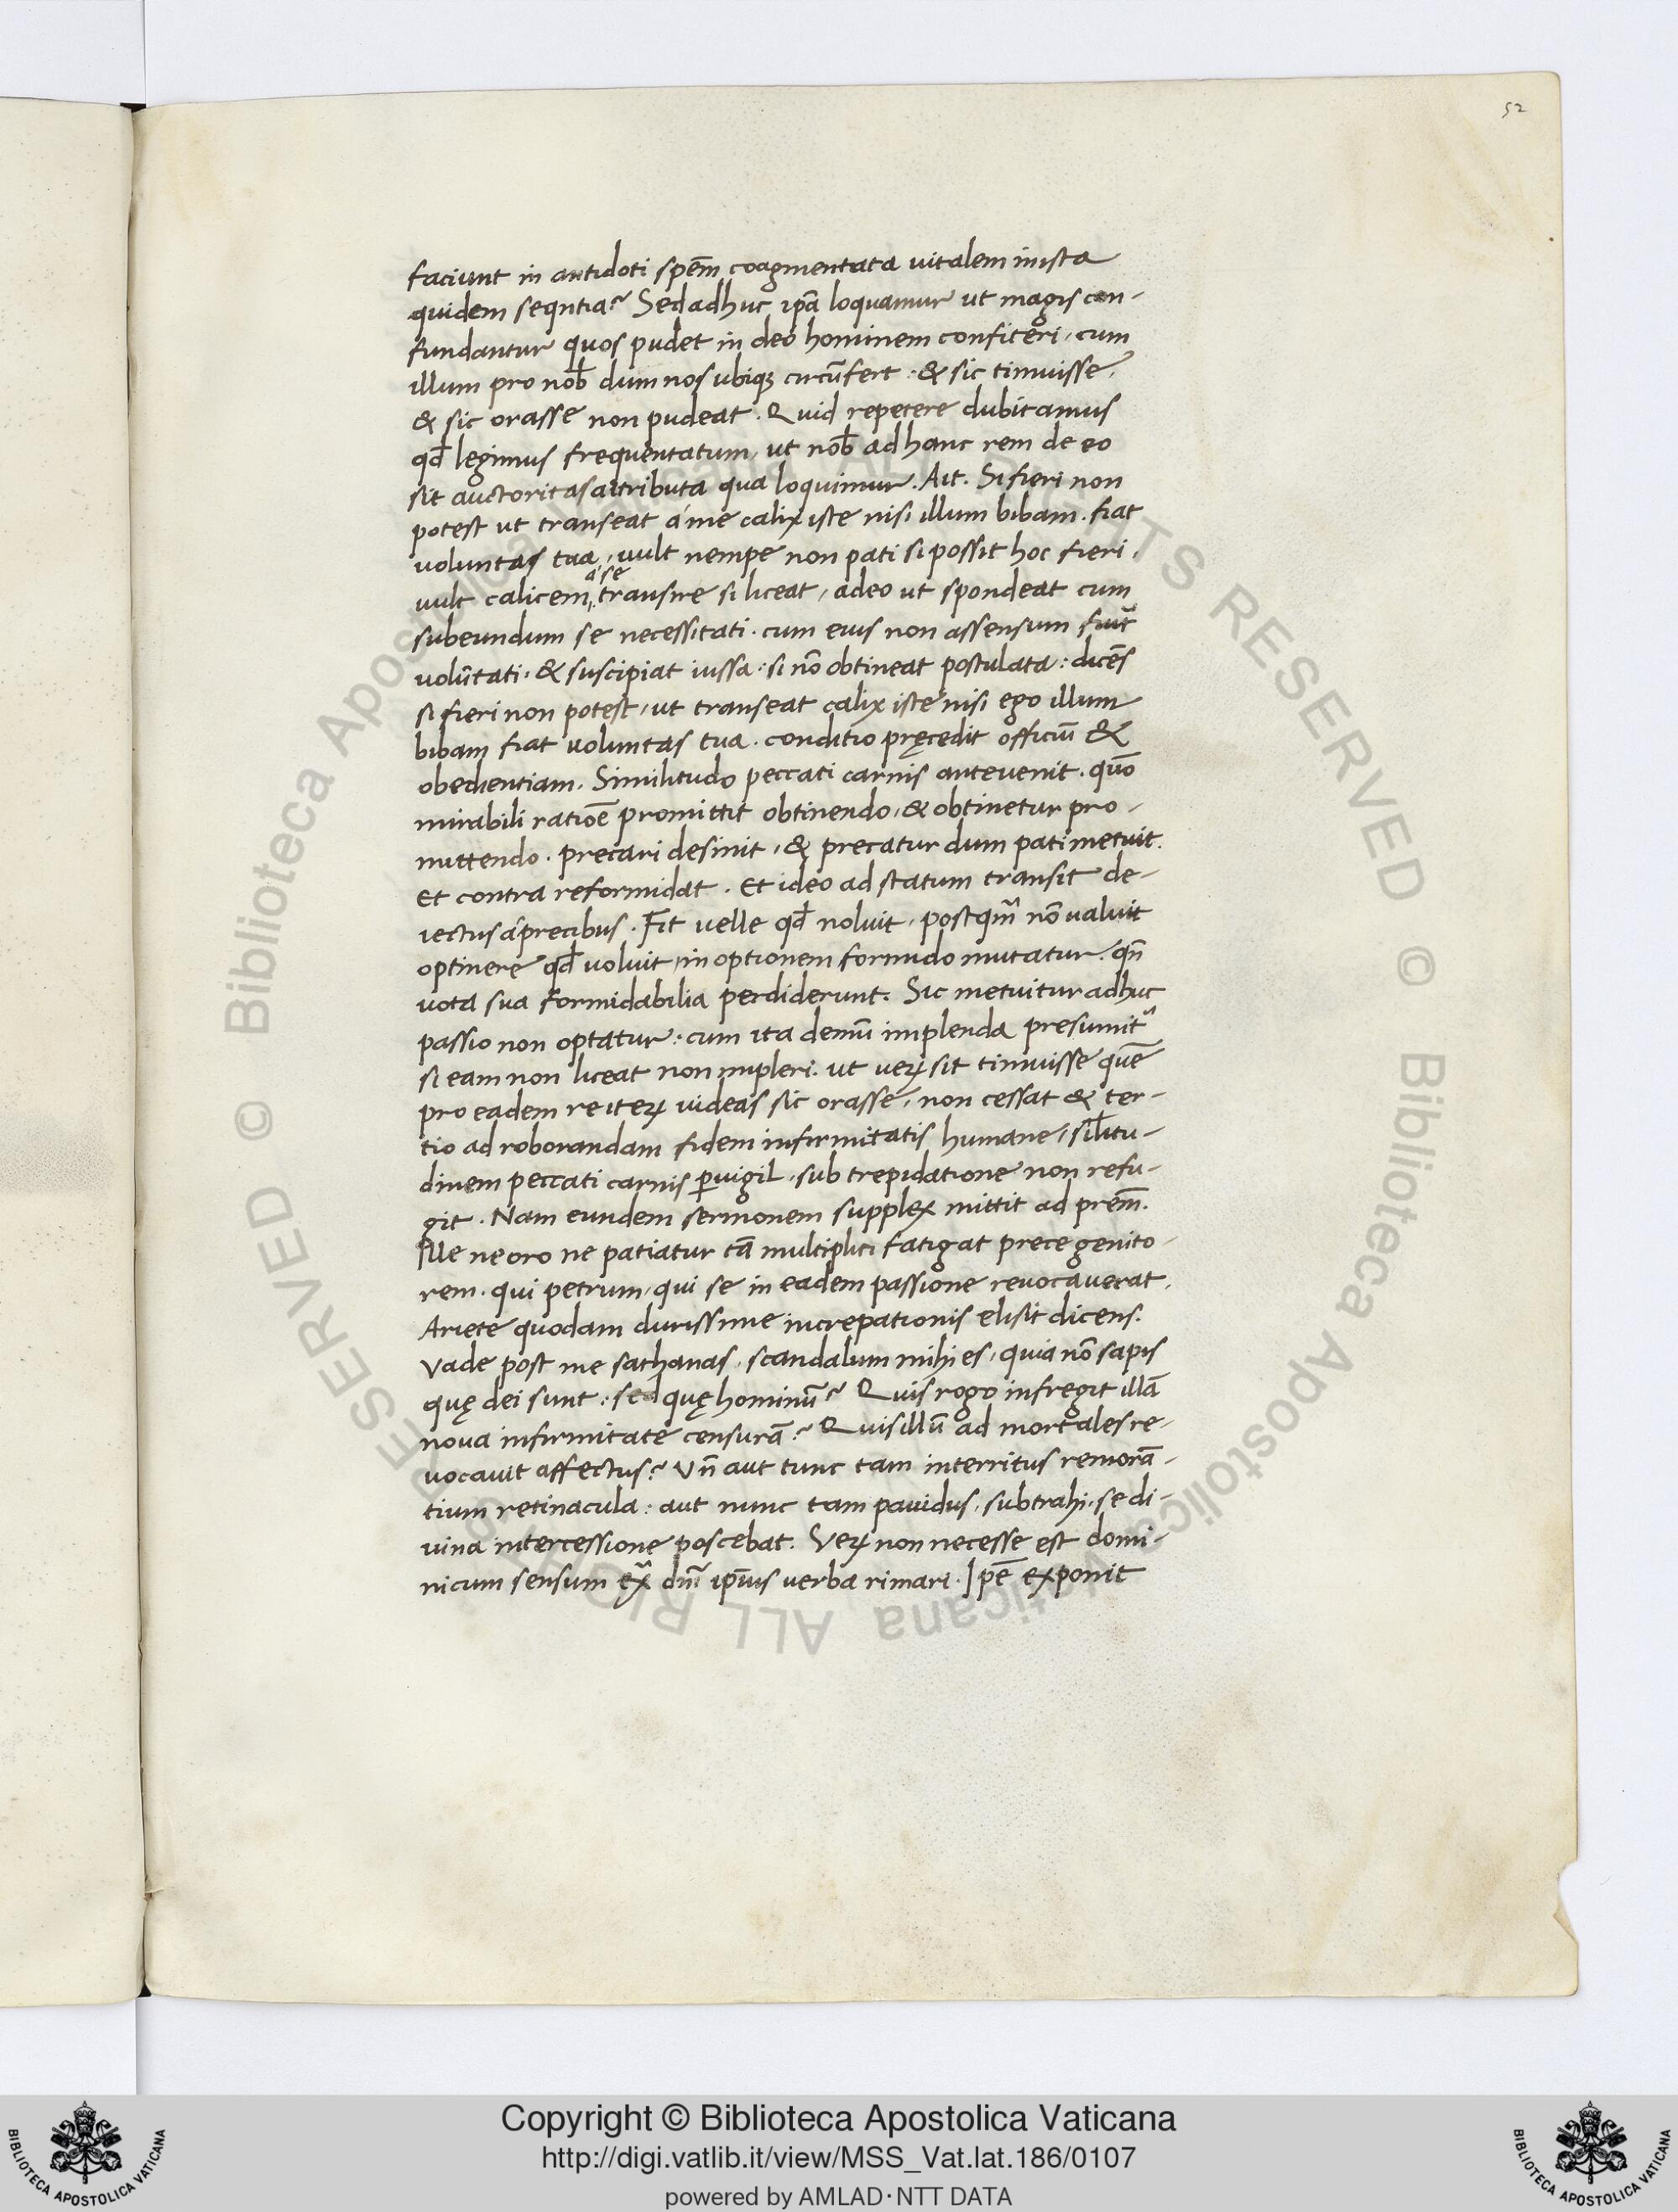 52
faciunt in antidoti spēm coagmentata uitalem iuxta
quidem seqntia? Sed adhuc ipā loquamur ut magis con-
fundantur quos pudet in deo hominem confiteri, cum
illum pro nob̄ dum nos ubiqȝ circūfert: & sic timuisse,
& sic orasse non pudeat. Quid repetere dubitamus
qd̄ legimus frequentatum, ut nob̄ ad hanc rem de eo
sit auctoritas attributa qua loquimur. Ait. Si fieri non
potest ut transeat á me calix iste nisi illum bibam. fiat
voluntas tua, uult nempe non pati si possit hoc fieri,
á se
uult calicem, transire si liceat, adeo ut spondeat cum
subeundum se necessitati. cum eius non assensum
volūtati. & suscipiat iussa: si nō obtineat postulata: dicēs
si fieri non potest, ut transeat calix iste nisi ego illum
bibam fiat voluntas tua. conditio pręcedit officiū &
obedientiam. Similitudo peccati carnis antevenit. quō
mirabili ratiōe promittit obtinendo, & obtinetur pro-
mittendo. precari desinit, & precatur dum pati metuit.
Et contra reformidat. Et ideo ad statum transit de-
iectus á precibus. Fit velle qd̄ noluit, postqm̄ nō valuit
optinere qd̄ voluit, in optionem formido mutatur. qn̄
vota sua formidabilia perdiderunt. Sic metuitur adhuc
passio non optatur: cum ita demū implenda presumit
si eam non liceat non impleri. ut veꝝ sit timuisse quē
pro eadem re iteꝝ uideas sic orasse, non cessat & ter-
tio ad roborandam fidem infirmitatis humane, sil̄itu-
dinem peccati carnis ꝑuigil, sub trepidatione non refu-
git. Nam eundem sermonem supplex mittit ad prēm.
Ille ne oro ne patiatur tā multiplici fatigat prece genito-
rem. qui petrum, qui se in eadem passione revocaverat,
Ariete quodam durissime increpationis elisit dicens.
Vade post me sathanas, scandalum mihi es, quia nō sapis
quę dei sunt: sed quę hominū? Quis rogo infregit illā
nova infirmitate censurā? Quis illū ad mortales re-
vocavit affectus? Vn̄ aut tunc tam interritus remorā-
tium retinacula: aut nunc tam pauidus, subtrahi, se di-
uina intercessione poscebat. Veꝝ non necesse est domi-
nicum sensum ex dnī ipīus verba rimari. Ipē exponit
© Biblioteca Apostolica Vaticana ALL RIGHTS RESERVED © Biblioteca Apostolica Vaticana ALL RIGHTS RESERVED
BIBLIOTECA APOSTOLICA VATICANA
Copyright © Biblioteca Apostolica Vaticana
http://digi.vatlib.it/view/MSS_Vat.lat.186/0107
powered by AMLAD·NTT DATA
BIBLIOTECA APOSTOLICA VATICANA